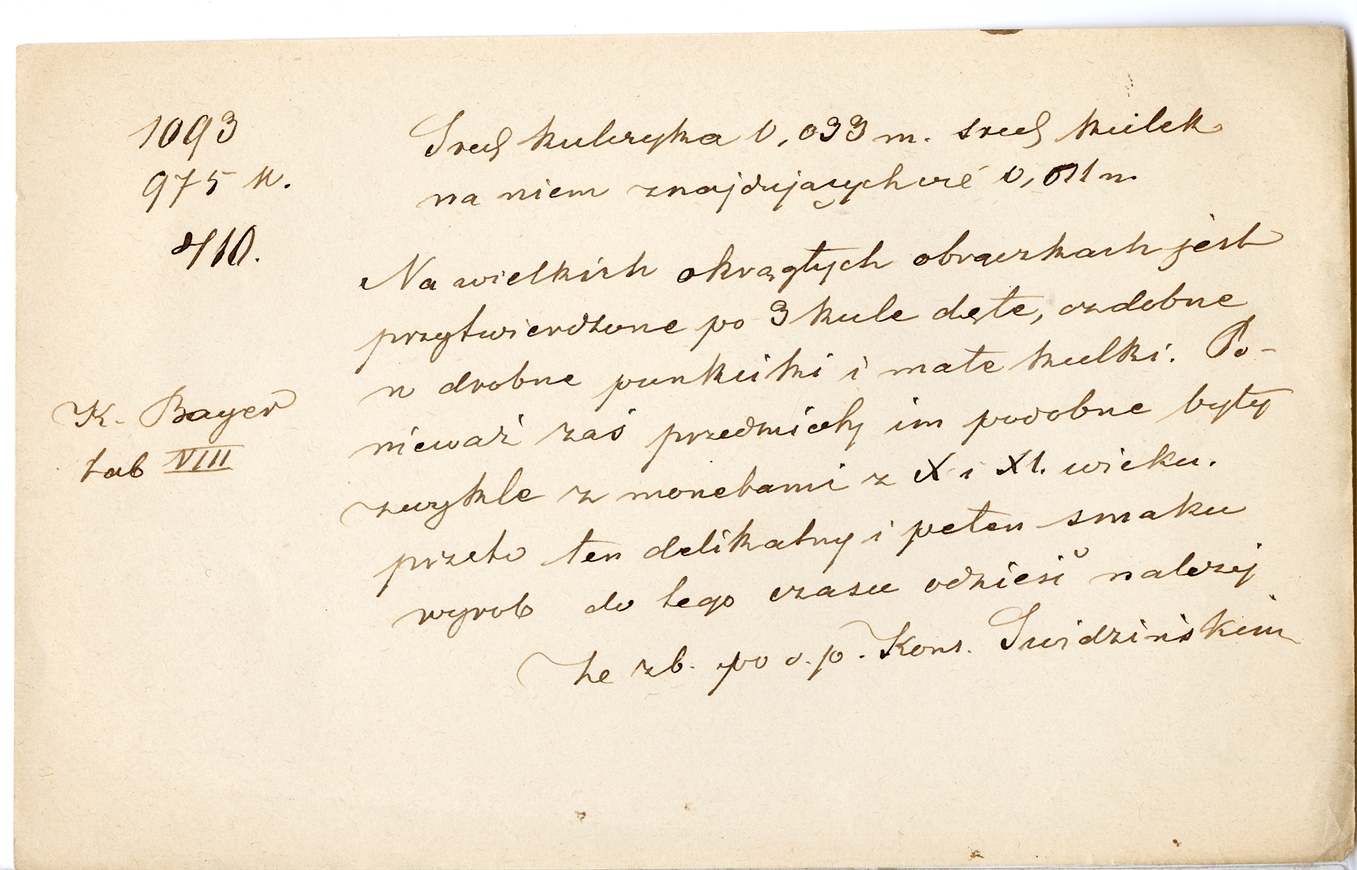 1093
975 M.
410.
Sred kulczyka 0,033 m. sred kulek
na niem znajdujących się 0,011 m.
Na wielkich okrągłych obrączkach jest
przytwierdzone po 3 kule dęte, ozdobne
w drobne punkciki i małe kulki. Po-
K. Bayer
nieważ zaś przedmioty im podobne były
tab VIII
zwykle z monetami z X i XI. wieku.
przeto ten delikatny i pełen smaku
wyrob do tego czasu odnieść należy
Ze zb. po ś.p. Kons. Swidzińskim